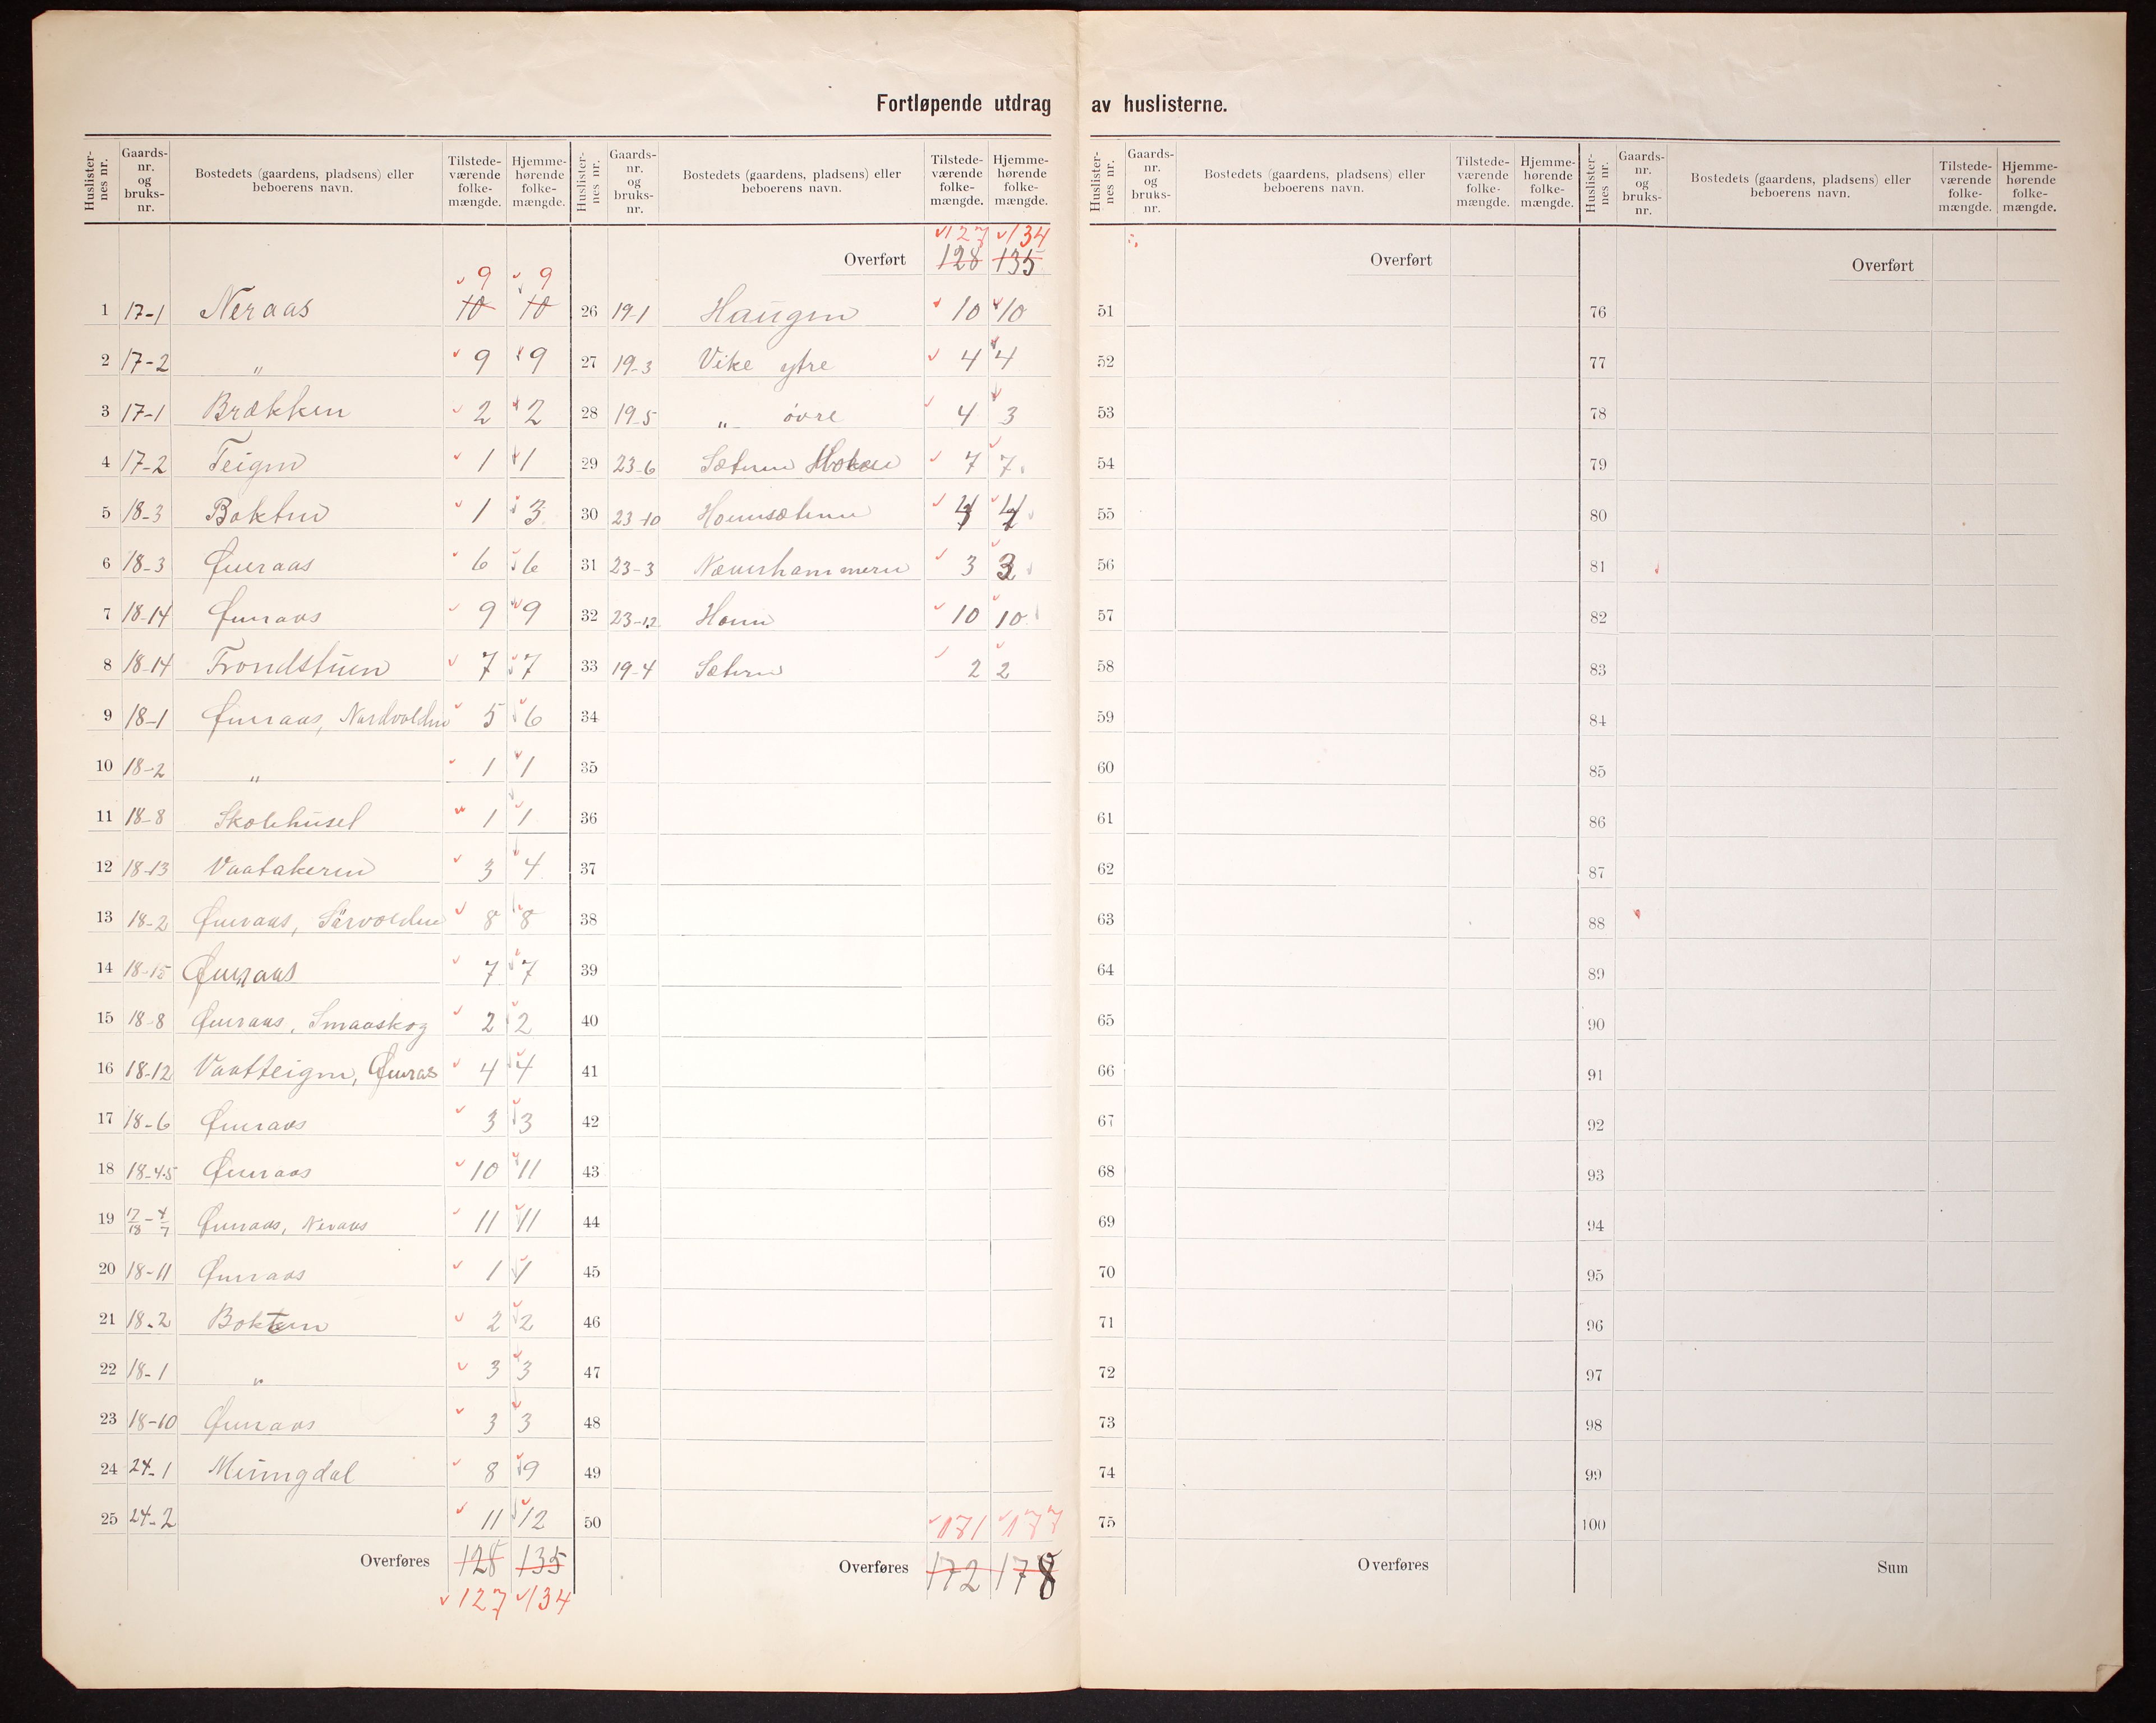 Fortløpende utdrag av huslisterne.
Huslisternes nr. Gaards-nr. og bruks-nr. Bostedets (gaardens, pladsens) eller beboerens navn. Tilstede-værende folke-mængde. Hjemme-hørende folke-mængde.
Huslisternes nr. Gaards-nr. og bruks-nr. Bostedets (gaardens, pladsens) eller beboerens navn. Tilstede-værende folke-mængde. Hjemme-hørende folke-mængde.
Huslisternes nr. Gaards-nr. og bruks-nr. Bostedets (gaardens, pladsens) eller beboerens navn. Tilstede-værende folke-mængde. Hjemme-hørende folke-mængde.
Huslisternes nr. Gaards-nr. og bruks-nr. Bostedets (gaardens, pladsens) eller beboerens navn. Tilstede-værende folke-mængde. Hjemme-hørende folke-mængde.
9 9
1 17-1 Neraas 10 10
2 17-2 " 9 9
3 17-1 Brækken 2 2
4 17-2 Teigen 1 1
5 18-3 Bakten 1 3
6 18-3 Øveraas 6 6
7 18-14 Øveraas 9 9
8 18-14 Trondstuen 7 7
9 18-1 Øveraas, Nordvolden 5 6
10 18-2 " 1 1
11 18-8 Skolehuset 1 1
12 18-13 Vaatakeren 3 4
13 18-2 Øveraas, Sørvolden 8 8
14 18-15 Øveraas 7 7
15 18-8 Øveraas, Smaaskog 2 2
16 18-12 Vaatteigen, Øveras 4 4
17 18-6 Øveraas 3 3
18 18-4.5 Øveraas 10 11
19 17/18 - 4/7 Øveraas, Neraas 11 11
20 18-11 Øveraas 1 1
21 18-2 Bokten 2 2
22 18-1 " 3 3
23 18-10 Øveraas 3 3
24 24-1 Meringdal 8 9
25 24-2 11 12
Overføres 128 135
127 134
127 134
Overført 128 135
26 19-1 Haugen 10 10
27 19-3 Vike ytre 4 4
28 19-5 " øvre 4 3
29 23-6 Sæteren 7 7
30 23-10 4 4
31 23-3 Næverhammeren 3 3
32 23-12 10 10
33 19-4 Sæteren 2 2
34
35
36
37
38
39
40
41
42
43
44
45
46
47
48
49
50
171 177
Overføres 172 178
Overført
51
52
53
54
55
56
57
58
59
60
61
62
63
64
65
66
67
68
69
70
71
72
73
74
75
Overføres
Overført
76
77
78
79
80
81
82
83
84
85
86
87
88
89
90
91
92
93
94
95
96
97
98
99
100
Sum